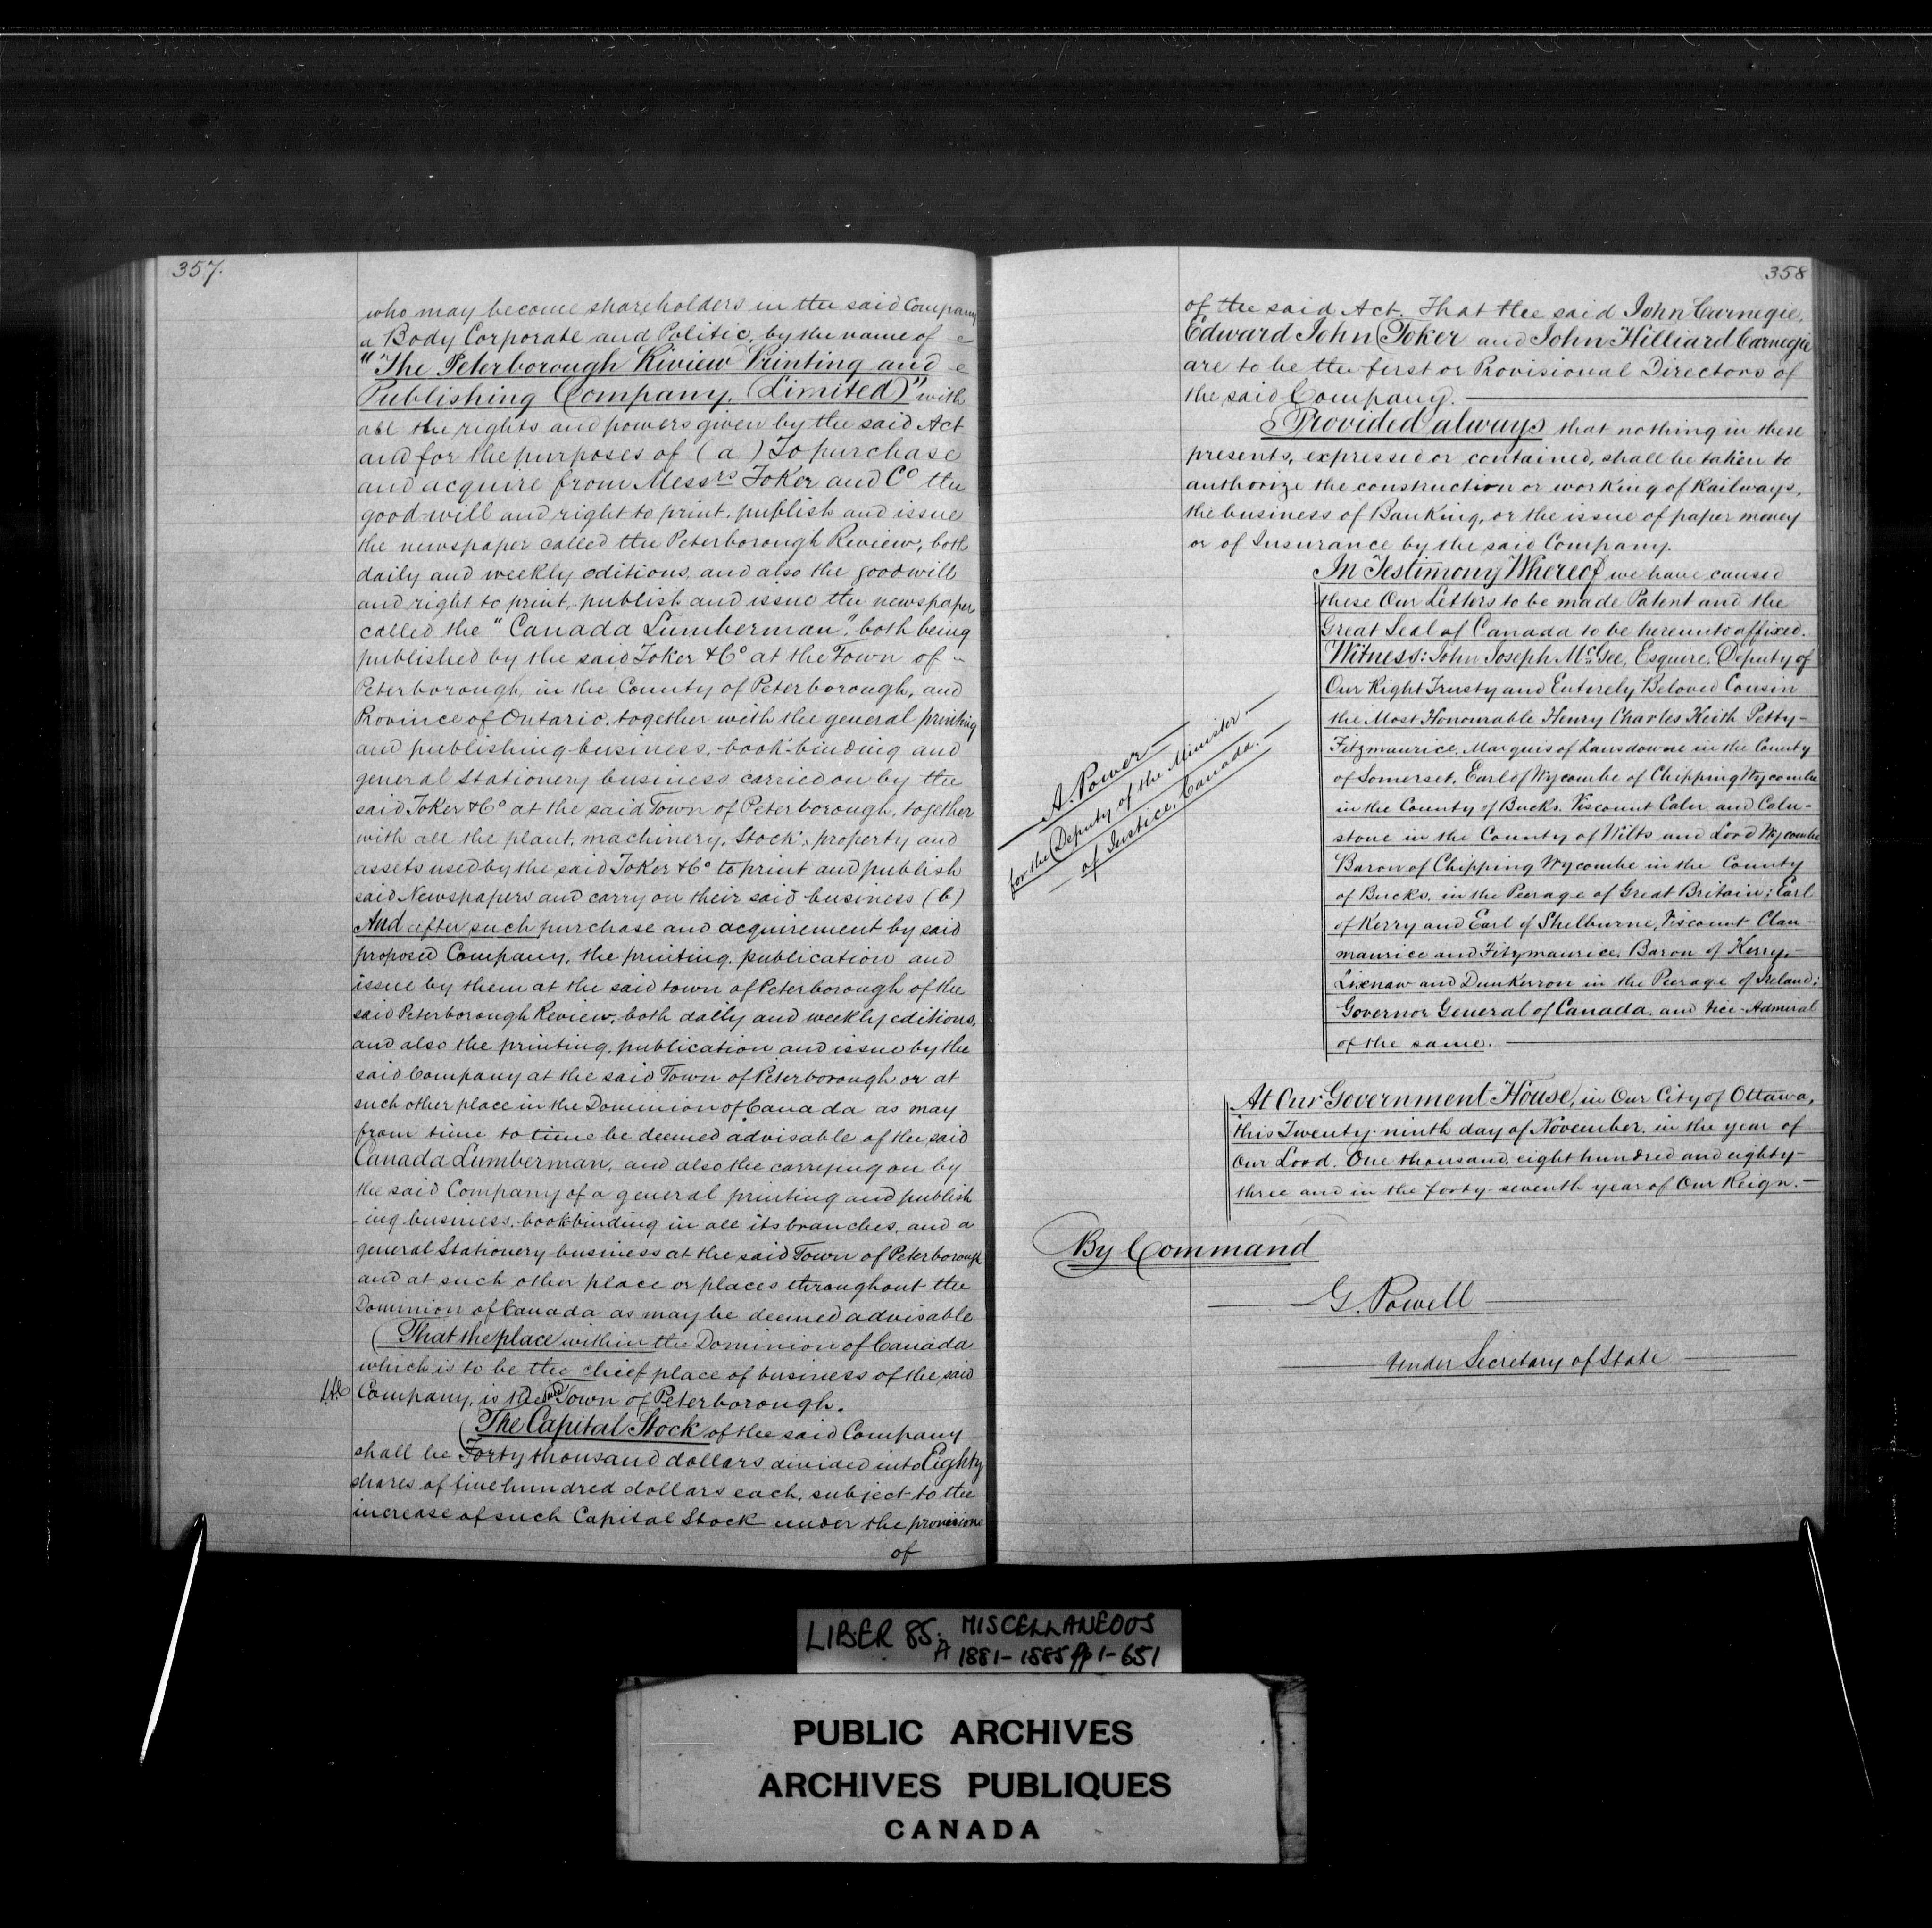 357.
who may become shareholders in the said Company
a Body Corporate and Politic, by the name of
"The Peterborough Review Printing and
Publishing Company, (Limited)" with
all the rights and powers given by the said Act
and for the purposes of (a) To purchase
and acquire from Messrs Toker and Co the
good-will and right to print, publish and issue
the newspaper called the Peterborough Review, both
daily and weekly editions, and also the goodwill
and right to print, publish and issue the newspaper
called the "Canada Lumberman", both being
published by the said Toker & Co at the Town of
Peterborough, in the County of Peterborough, and
Province of Ontario, together with the general printing
and publishing business, book-binding and
general Stationery business carried on by the
said Toker & Co at the said Town of Peterborough, together
with all the plant, machinery, Stock, property and
assets used by the said Toker & Co to print and publish
said Newspapers and carry on their said business (b)
And after such purchase and acquirement by said
proposed Company, the printing, publication and
issue by them at the said town of Peterborough of the
said Peterborough Review, both daily and weekly editions,
and also the printing, publication and issue by the
said Company at the said Town of Peterborough or at
such other place in the Dominion of Canada as may
from time to time be deemed advisable of the said
Canada Lumberman, and also the carrying on by
the said Company of a general printing and publish
-ing business, bookbinding in all its branches, and a
general Stationery business at the said Town of Peterborough
and at such other place or places throughout the
Dominion of Canada as may be deemed advisable
That the place within the Dominion of Canada
which is to be the chief place of business of the said
Company, is the said Town of Peterborough.
The Capital Stock of the said Company
shall be Forty thousand dollars divided into Eighty
shares of five hundred dollars each, subject to the
increase of such Capital Stock under the provisions
of
358
of the said Act. That the said John Carnegie,
Edward John Toker and John Hilliard Carnegie
are to be the first or Provisional Directors of
the said Company.
Provided always that nothing in these
presents, expressed or contained, shall be taken to
authorize the construction or working of Railways,
the business of Banking, or the issue of paper money
or of Insurance by the said Company.
In Testimony Whereof we have caused
these Our Letters to be made Patent and the
Great Seal of Canada to be hereunto affixed.
Witness: John Joseph McGee, Esquire, Deputy of
Our Right Trusty and Entirely Beloved Cousin
the Most Honourable Henry Charles Keith Petty-
Fitzmaurice, Marquis of Lansdowne in the County
of Somerset, Earl of Wycombe of Chipping Wycombe
in the County of Bucks, Viscount Caln and Caln-
stone in the County of Wilts and Lord Wycombe
Baron of Chipping Wycombe in the County
of Bucks, in the Peerage of Great Britain; Earl
of Kerry and Earl of Shelburne, Viscount Clan-
maurice and Fitzmaurice, Baron of Kerry,
Lixnaw and Dunkerron in the Peerage of Ireland;
Governor General of Canada, and Vice-Admiral
of the same.
A. Power
for the Deputy of the Minister
of Justice, Canada.
At Our Government House, in Our City of Ottawa,
this Twenty-ninth day of November, in the year of
Our Lord, One thousand, eight hundred and eighty-
three and in the forty-seventh year of Our Reign.
By Command
G. Powell
Under Secretary of State
LIBER 85. MISCELLANEOUS
A 1881-1885 pp 1-651
PUBLIC ARCHIVES
ARCHIVES PUBLIQUES
CANADA